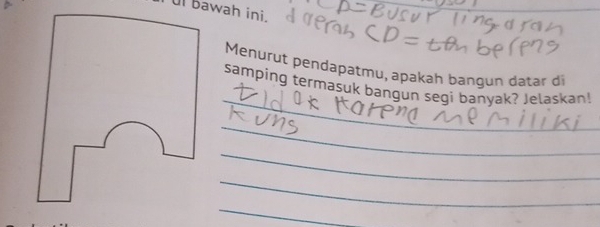 bawah ini.
CD = Busur lingaran
daerah CD = tem bereng
Menurut pendapatmu, apakah bangun datar di
samping termasuk bangun segi banyak? Jelaskan!
tidak karena memiliki